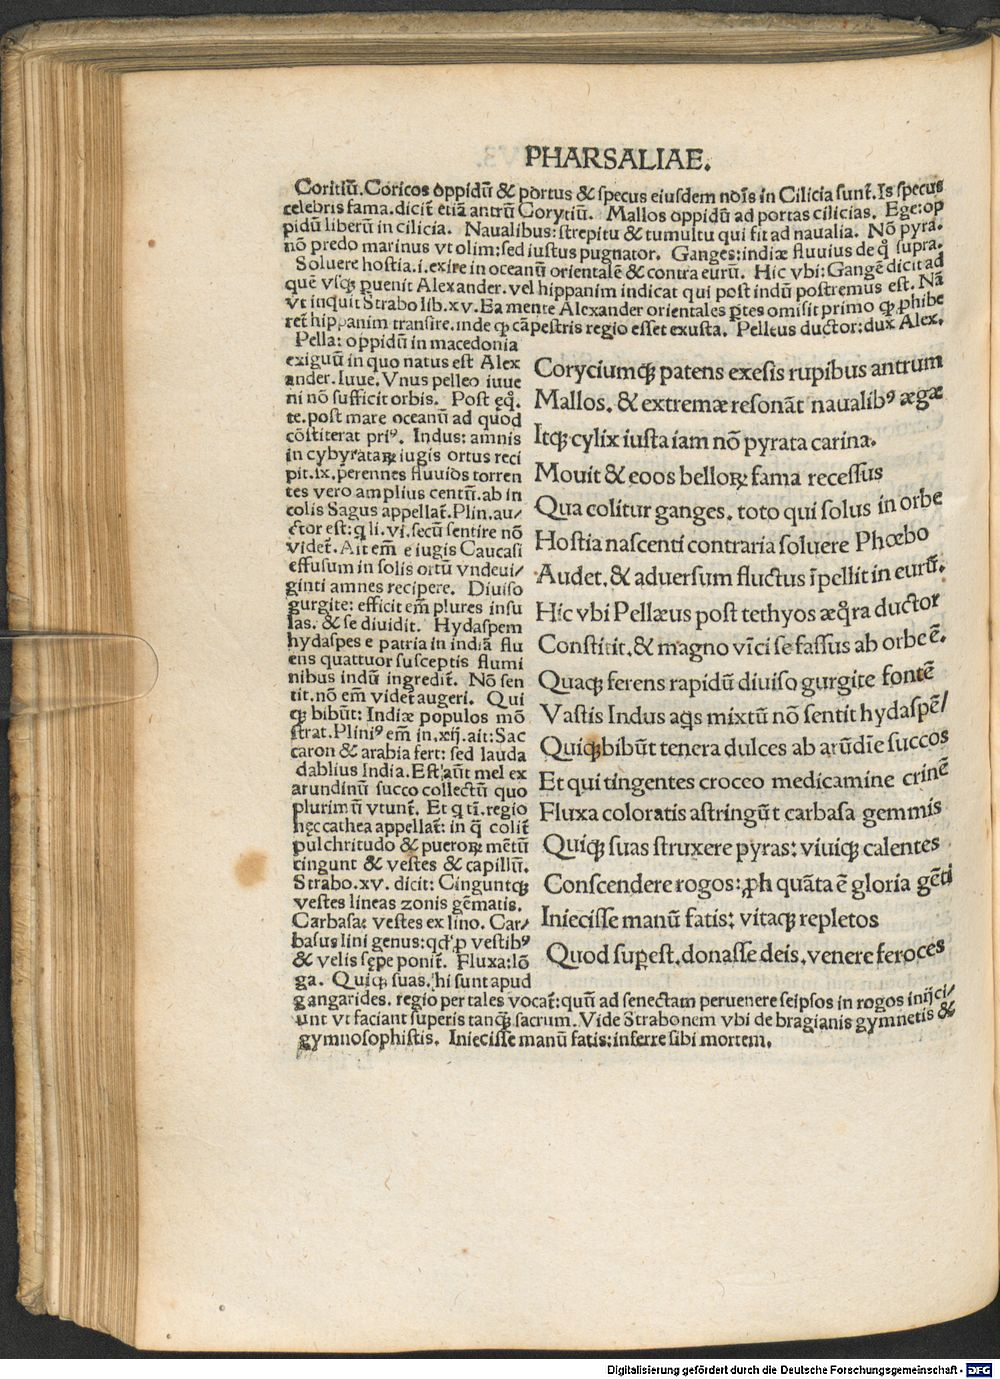 PHARSALIAE.
Coritiū. Coricos oppidū & portus & specus eiusdem noīs in Cilicia sunt̄. Is specus
celebris fama. dicit̄ etiā antrū Corytiū. Mallos oppidū ad portas cilicias. Ege: op
pidū liberū in cilicia. Naualibus: strepitu & tumultu qui fit ad naualia. Nō pyra.
nō predo marinus vt olim: sed iustus pugnator. Ganges: indiæ fluuius de q̊ supra.
Soluere hostia. i. exire in oceanū orientalē & contra eurū. Hic vbi: Gangē dicit ad
quē vsq; puenit Alexander. vel hippanim indicat qui post indū postremus est. Nā
vt inquit Strabo lib. xv. Ea mente Alexander orientales ptes omisit primo ꝙ phibe
ret̄ hippanim transire. inde ꝙ cāpestris regio esset exusta. Pelleus ductor: dux Alex.
Pella: oppidū in macedonia
exiguū in quo natus est Alex
ander. Iuue. Vnus pelleo iuue
ni nō sufficit orbis. Post eq̄.
te. post mare oceanū ad quod
cōstiterat priꝰ. Indus: amnis
in cybyrataꝝ iugis ortus reci
pit. ix. perennes fluuios torren
tes vero amplius centū. ab in
colis Sagus appellat̄. Plin. au/
ctor est: q li. vi. secū sentire nō
videt̄. Ait em̄ e iugis Caucasi
effusum in solis ortū vndeui/
ginti amnes recipere. Diuiso
gurgite: efficit em̄ plures insu
las. & se diuidit. Hydaspem
hydaspes e patria in indiā flu
ens quattuor susceptis flumi
nibus indū ingredit̄. Nō sen
tit. nō em̄ videt̄ augeri. Qui
q; bibūt: Indiæ populos mō
strat. Pliniꝰ em̄ in. xij. ait: Sac
caron & arabia fert: sed lauda
dablius India. Est aūt mel ex
arundinū succo collectū quo
plurimū vtunt̄. Et q tī. regio
hęc cathea appellat̄: in q̄ colit̄
pulchritudo & pueroꝝ mētū
tingunt & vestes & capillū.
Strabo. xv. dicit: Cinguntq;
vestes lineas zonis gēmatis.
Carbasa: vestes ex lino. Car/
basus lini genus: qd' p vestibꝰ
& velis sępe ponit̄. Fluxa: lō
ga. Quiq; suas. hi sunt apud
gangarides. regio per tales vocat̄: quū ad senectam peruenere seipsos in rogos inijci/
unt vt faciant superis tanq̄ sacrum. Vide Strabonem vbi de bragianis gymnetis &
gymnosophistis. Iniecisse manū fatis: inferre sibi mortem.
Coryciumq; patens exesis rupibus antrum
Mallos. & extremæ resonāt naualibꝰ ægæ
Itq; cylix iusta iam nō pyrata carina.
Mouit & eoos belloꝝ fama recessus
Qua colitur ganges. toto qui solus in orbe
Hostia nascenti contraria soluere Phœbo
Audet. & aduersum fluctus īpellit in eurū.
Hic vbi Pellæus post tethyos æq̊ra ductor
Constitit. & magno vīci se fassus ab orbe ē.
Quaq; ferens rapidū diuiso gurgite fontē
Vastis Indus aqs mixtū nō sentit hydaspē/
Quiq; bibūt tenera dulces ab arūdīe succos
Et qui tingentes croceo medicamine crinē
Fluxa coloratis astringūt carbasa gemmis
Quiq; suas struxere pyras: viuiq; calentes
Conscendere rogos: ꝓh quāta ē gloria gēti
Iniecisse manū fatis: vitaq; repletos
Quod supest. donasse deis. venere feroces
Digitalisierung gefördert durch die Deutsche Forschungsgemeinschaft - DFG